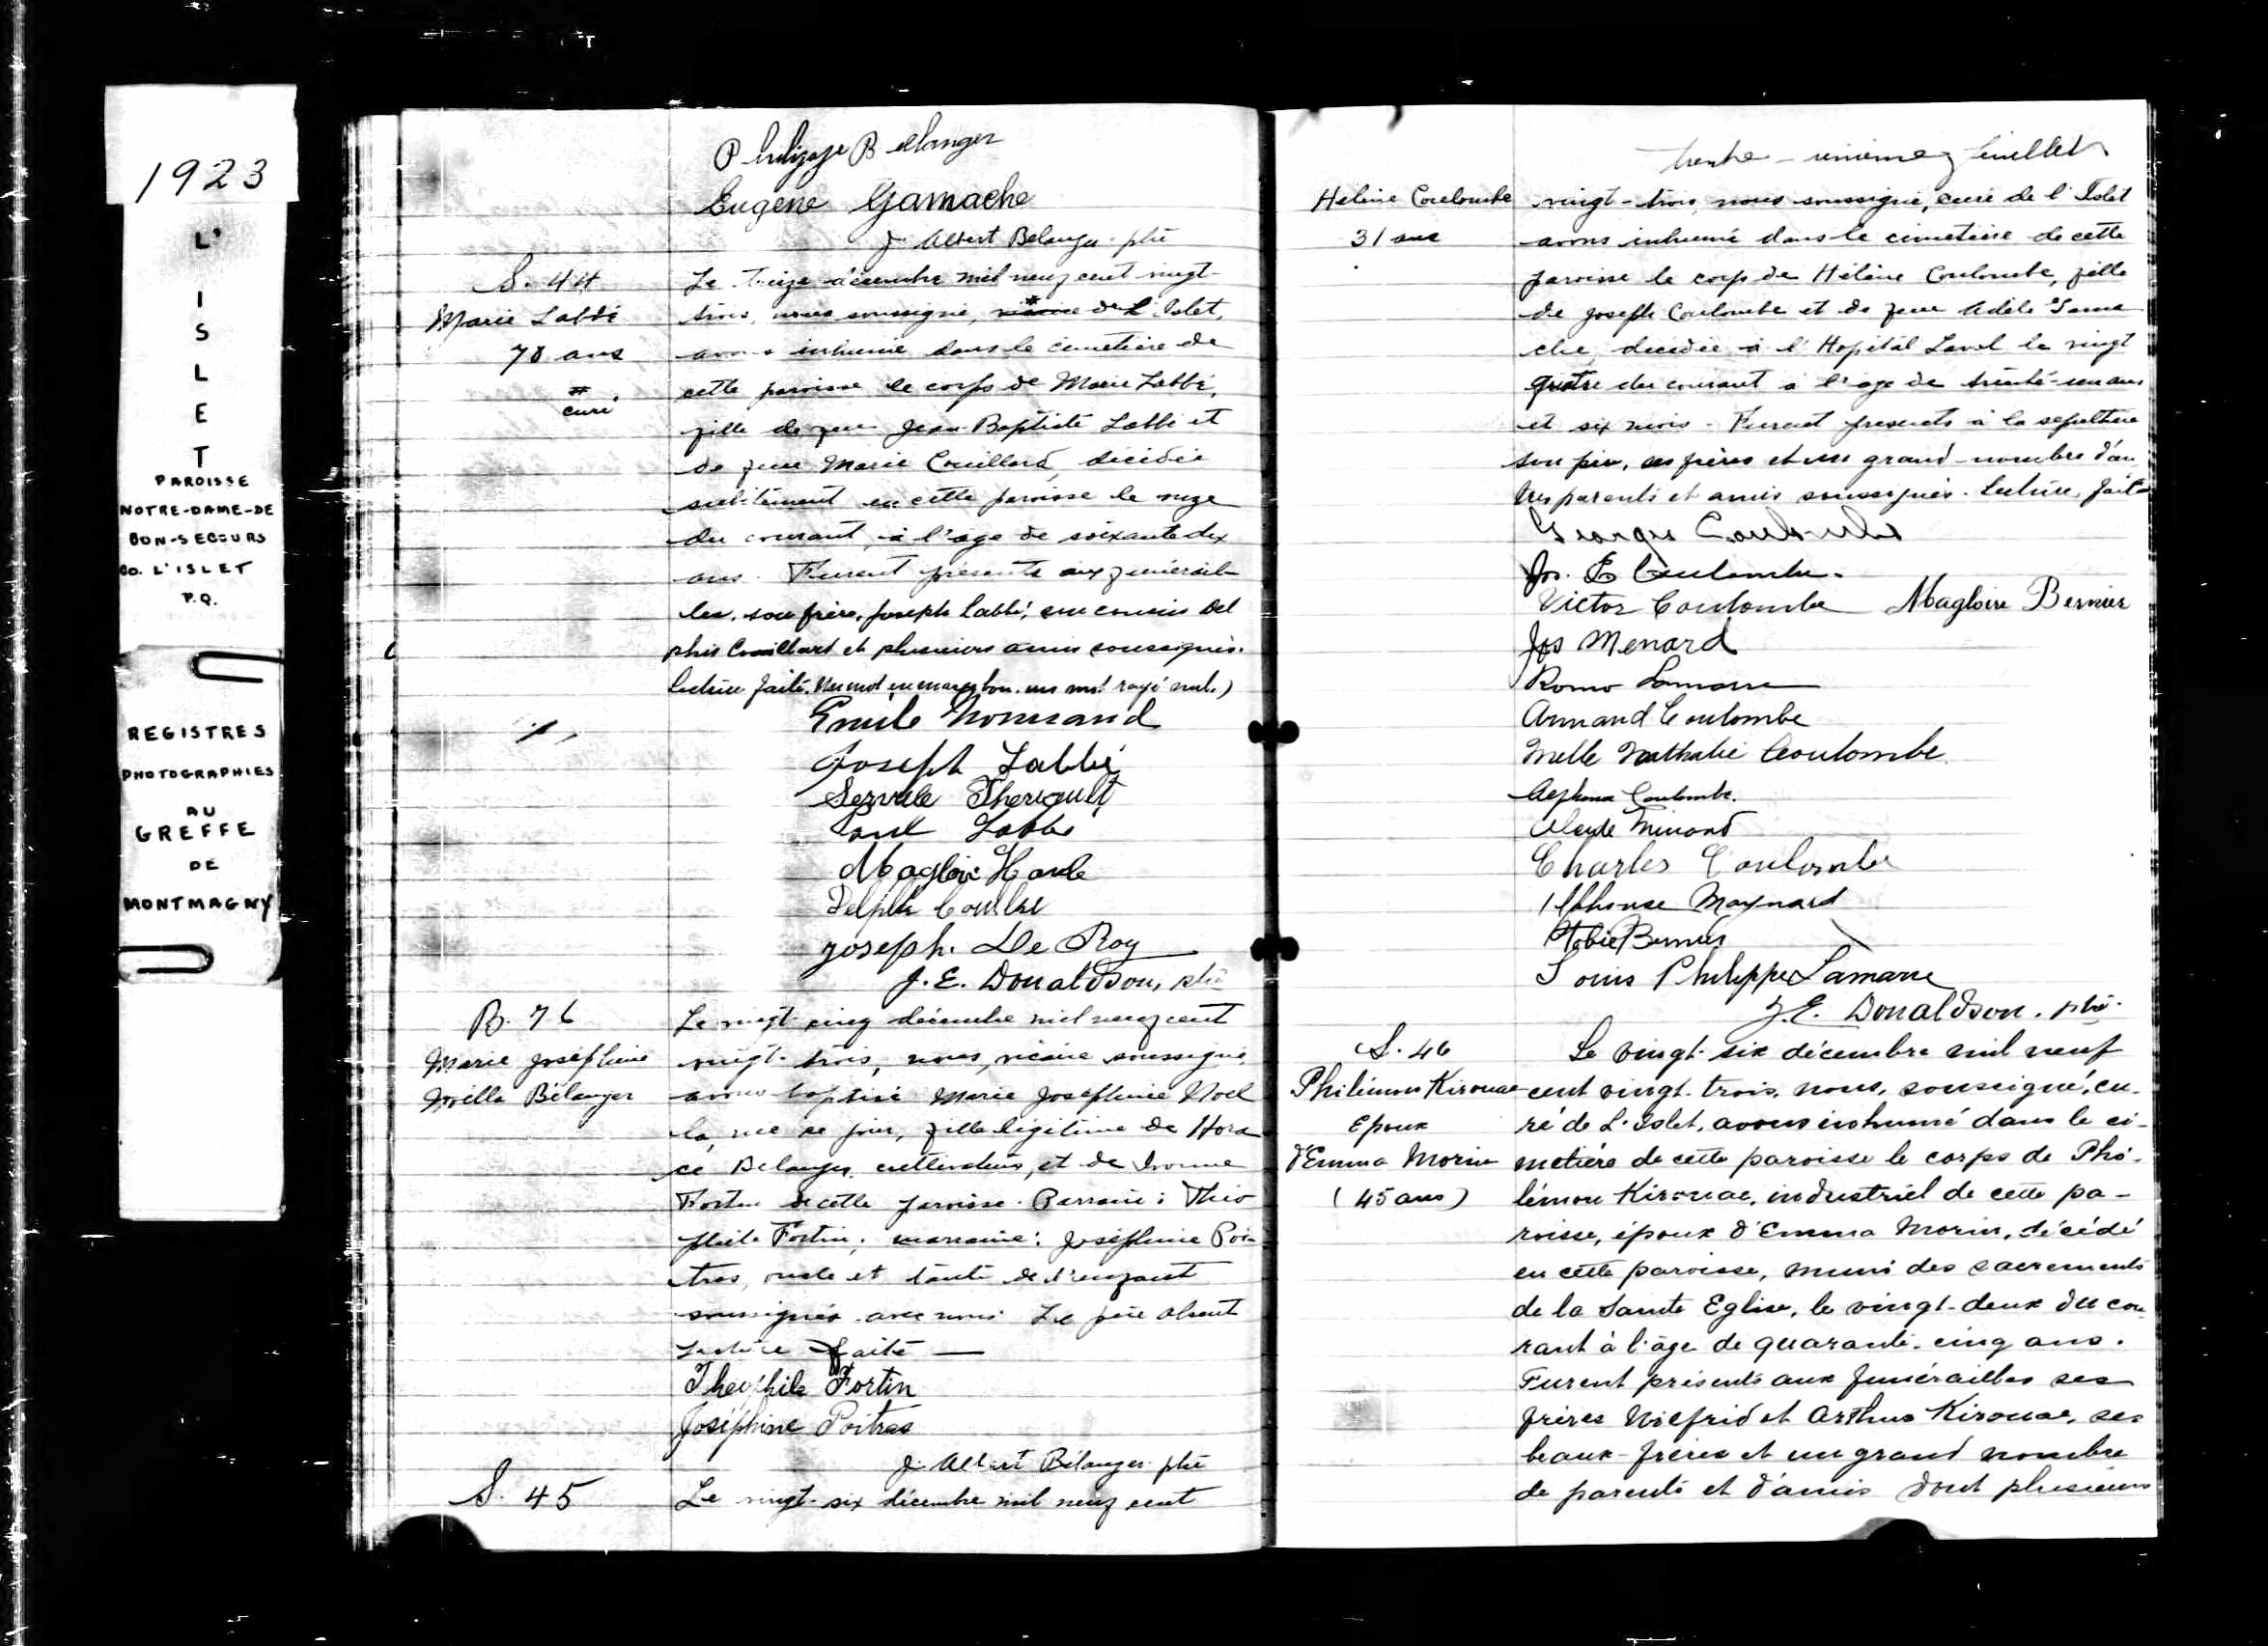 1923
L'
I
S
L
E
T
PAROISSE
NOTRE-DAME-DE
BON-SECOURS
CO. L'ISLET
P.Q.
REGISTRES
PHOTOGRAPHIES
AU
GREFFE
DE
MONTMAGNY
Bélanger
Eugène Gamache
J. Albert Bélanger ptre
S. 44
Marie Labbé
70 ans
#
curé
Le treize décembre mil neuf cent vingt-
trois, nous soussigné, vicaire de L'Islet,
avons inhumé dans le cimetière de
cette paroisse le corps de Marie Labbé,
fille de feu Jean-Baptiste Labbé et
de feue Marie Couillard, décédée
subitement en cette paroisse le onze
du courant, à l'âge de soixante dix
ans. Furent présents aux funérail-
les, son frère, Joseph Labbé, son cousin Del
phis Couillard et plusieurs amis soussignés.
Lecture faite. Un mot en marge bon. un mot rayé nul.)
Emile Normand
Joseph Labbé
Servule Theriault
Paul Labbé
Magloire
Joseph. Le Roy
J. E. Donaldson, ptre
B. 76
Marie Joséphine
Noëlla Bélanger
Le vingt-cinq décembre mil neuf cent
vingt-trois, nous, vicaire soussigné,
avons baptisé Marie Joséphine Noel
la, née ce jour, fille légitime de Hora
ce Bélanger, cultivateur, et de Ivonne
Fortin de cette paroisse. Parrain: Théo
phile Fortin; marraine: Joséphine Poi-
tras, oncle et tante de l'enfant
soussignés avec nous. Le père absent
Lecture faite —
Theophile Fortin
Joséphine Poitras
J. Albert Bélanger ptre
S. 45
Le vingt-six décembre mil neuf cent
trente-unième feuillet
Hélène Coulombe
31 ans
vingt-trois, nous soussigné, curé de l'Islet
avons inhumé dans le cimetière de cette
paroisse le corps de Hélène Coulombe, fille
de Joseph Coulombe et de feue Adèle Gama
che, décédée à l'Hopital Laval le vingt
quatre du courant à l'âge de trente-un ans
et six mois - Furent présents à la sépulture
son père, ses frères et un grand-nombre d'au
tres parents et amis soussignés. Lecture, faite
Georges Coulombe
Jos. E Coulombe.
Victor Coulombe Magloire Bernier
Jos Menard
Romo Lamarre
Armand Coulombe
Melle Nathalie Coulombe
Alphonse Coulombe.
Charles Coulombe
Alphonse Maynard
Bernier
Louis Philippe Lamarre
J. E. Donaldson. ptre.
S. 46
Philémon Kirouac
Epoux
d'Emma Morin
(45 ans)
Le vingt-six décembre mil neuf
cent vingt-trois, nous, soussigné, cu-
ré de L'Islet, avons inhumé dans le ci-
metière de cette paroisse le corps de Phi-
lémon Kirouac, industriel de cette pa-
roisse, époux d'Emma Morin, décédé
en cette paroisse, muni des sacrements
de la Sainte Eglise, le vingt-deux du cou
rant à l'âge de quarante-cinq ans.
Furent présents aux funérailles ses
frères Wilfrid et Arthur Kirouac, ses
beaux-frères et un grand nombre
de parents et d'amis dont plusieurs